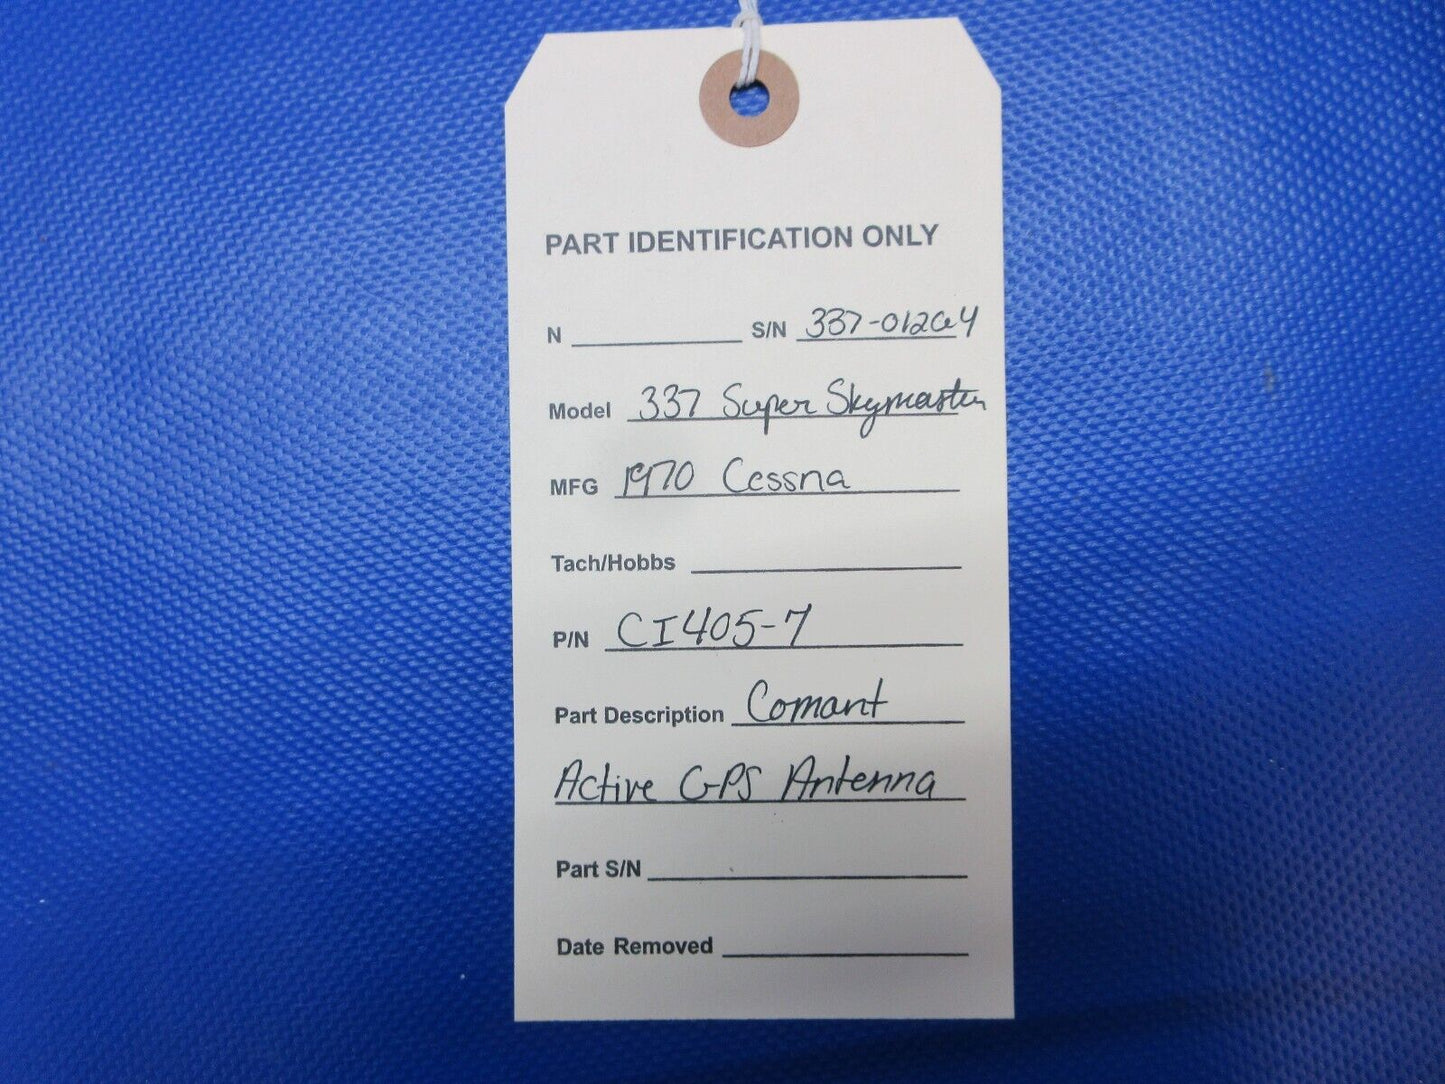 PART IDENTIFICATION ONLY
N S/N 337-01264
Model 337 Super Skymaster
MFG 1970 Cessna
Tach/Hobbs
P/N CI405-7
Part Description Comant
Active GPS Antenna
Part S/N
Date Removed